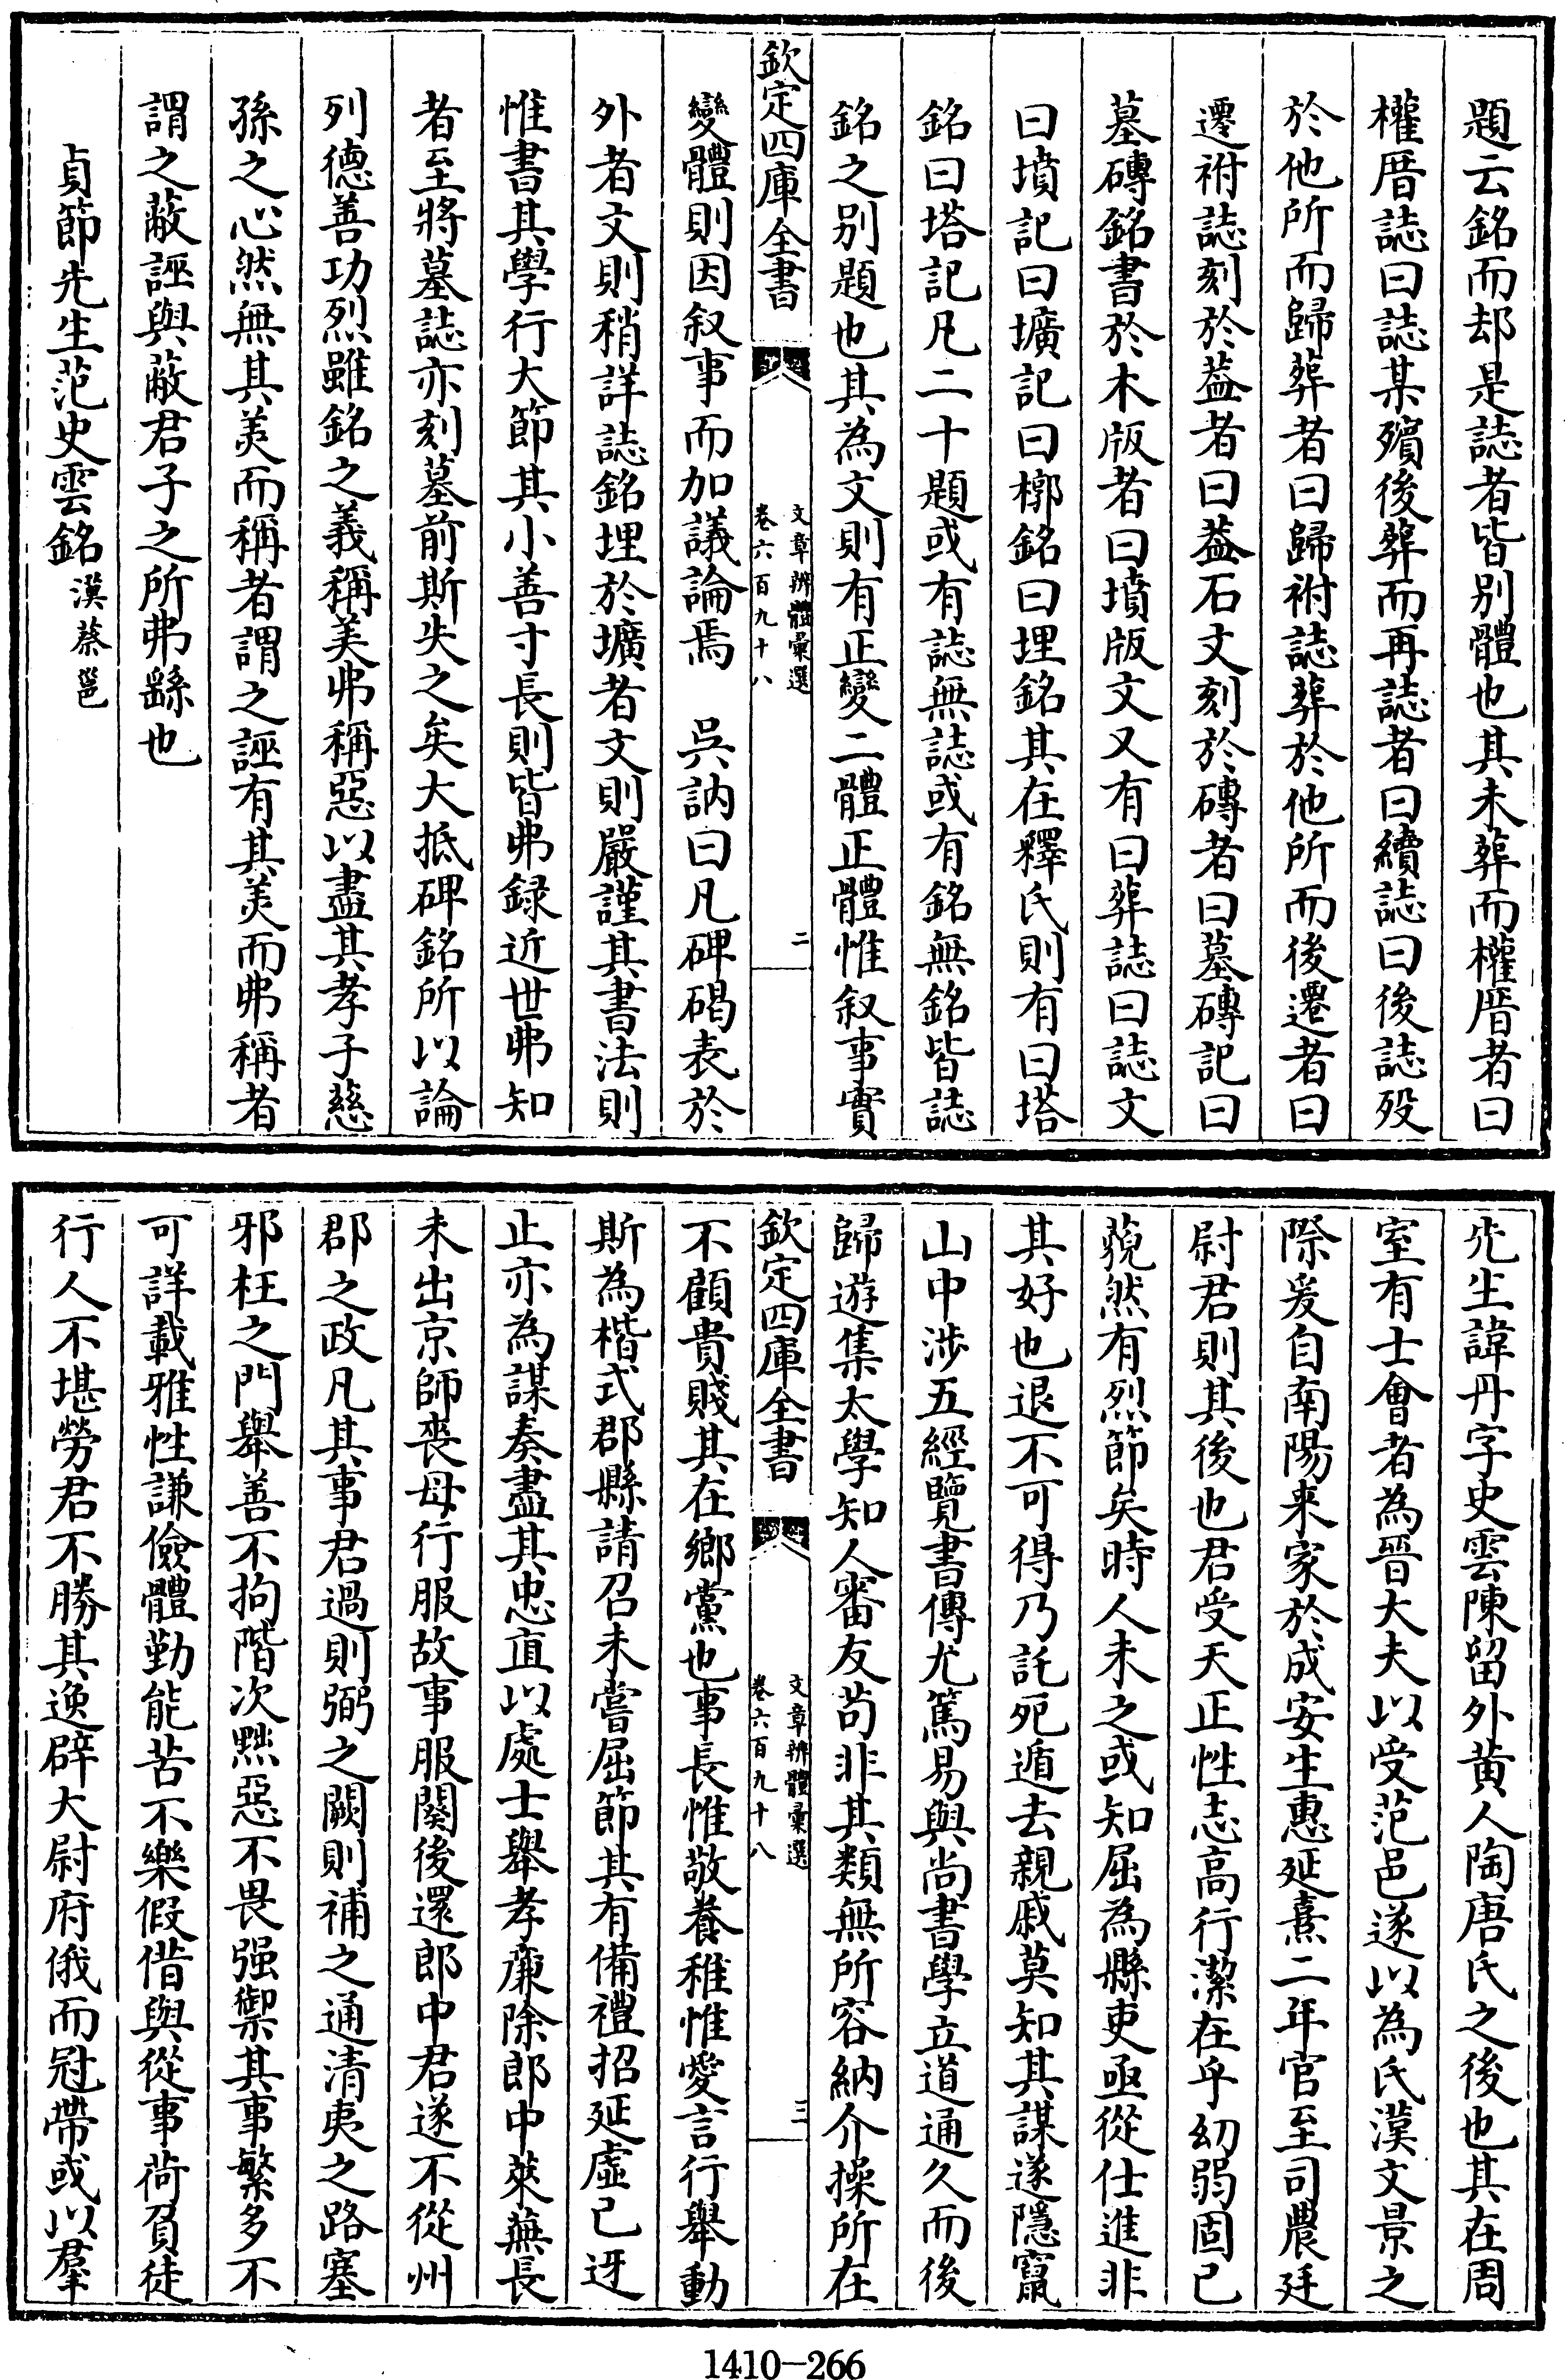 題云銘而却是誌者皆别體也其未葬而權厝者曰
權厝誌曰誌某殯後葬而再誌者曰續誌曰後誌歿
於他所而歸葬者曰歸祔誌葬於他所而後遷者曰
遷祔誌刻於葢者曰葢石文刻於磚者曰墓磚記曰
墓磚銘書於木版者曰墳版文又有曰葬誌曰誌文
曰墳記曰壙記曰槨銘曰埋銘其在釋氏則有曰塔
銘曰塔記凡二十題或有誌無誌或有銘無銘皆誌
銘之别題也其為文則有正變二體正體惟叙事實
欽定四庫全書
文章辨體彙選
卷六百九十八
二
變體則因叙事而加議論焉 吳訥曰凡碑碣表於
外者文則稍詳誌銘埋於壙者文則嚴謹其書法則
惟書其學行大節其小善寸長則皆弗録近世弗知
者至將墓誌亦刻墓前斯失之矣大抵碑銘所以論
列德善功烈雖銘之義稱美弗稱惡以盡其孝子慈
孫之心然無其美而稱者謂之誣有其美而弗稱者
謂之蔽誣與蔽君子之所弗繇也
貞節先生范史雲銘 漢蔡邕
先生諱丹字史雲陳留外黄人陶唐氏之後也其在周
室有士會者為晉大夫以受范邑遂以為氏漢文景之
際爰自南陽来家於成安生惠延熹二年官至司農廷
尉君則其後也君受天正性志高行潔在乎幼弱固已
藐然有烈節矣時人未之或知屈為縣吏亟從仕進非
其好也退不可得乃託死遁去親戚莫知其謀遂隱竄
山中涉五經覽書傳尤篤易與尚書學立道通久而後
歸遊集太學知人審友苟非其類無所容納介操所在
欽定四庫全書
文章辨體彙選
卷六百九十八
三
不顧貴賤其在鄉黨也事長惟敬養稚惟愛言行舉動
斯為楷式郡縣請召未嘗屈節其有備禮招延虛已迓
止亦為謀奏盡其忠直以處士舉孝廉除郎中萊蕪長
未出京師喪母行服故事服闋後還郎中君遂不從州
郡之政凡其事君過則弼之闕則補之通清夷之路塞
邪枉之門舉善不拘階次黜惡不畏强禦其事繁多不
可詳載雅性謙儉體勤能苦不樂假借與從事荷負徒
行人不堪勞君不勝其逸辟大尉府俄而冠帶或以羣
1410-266